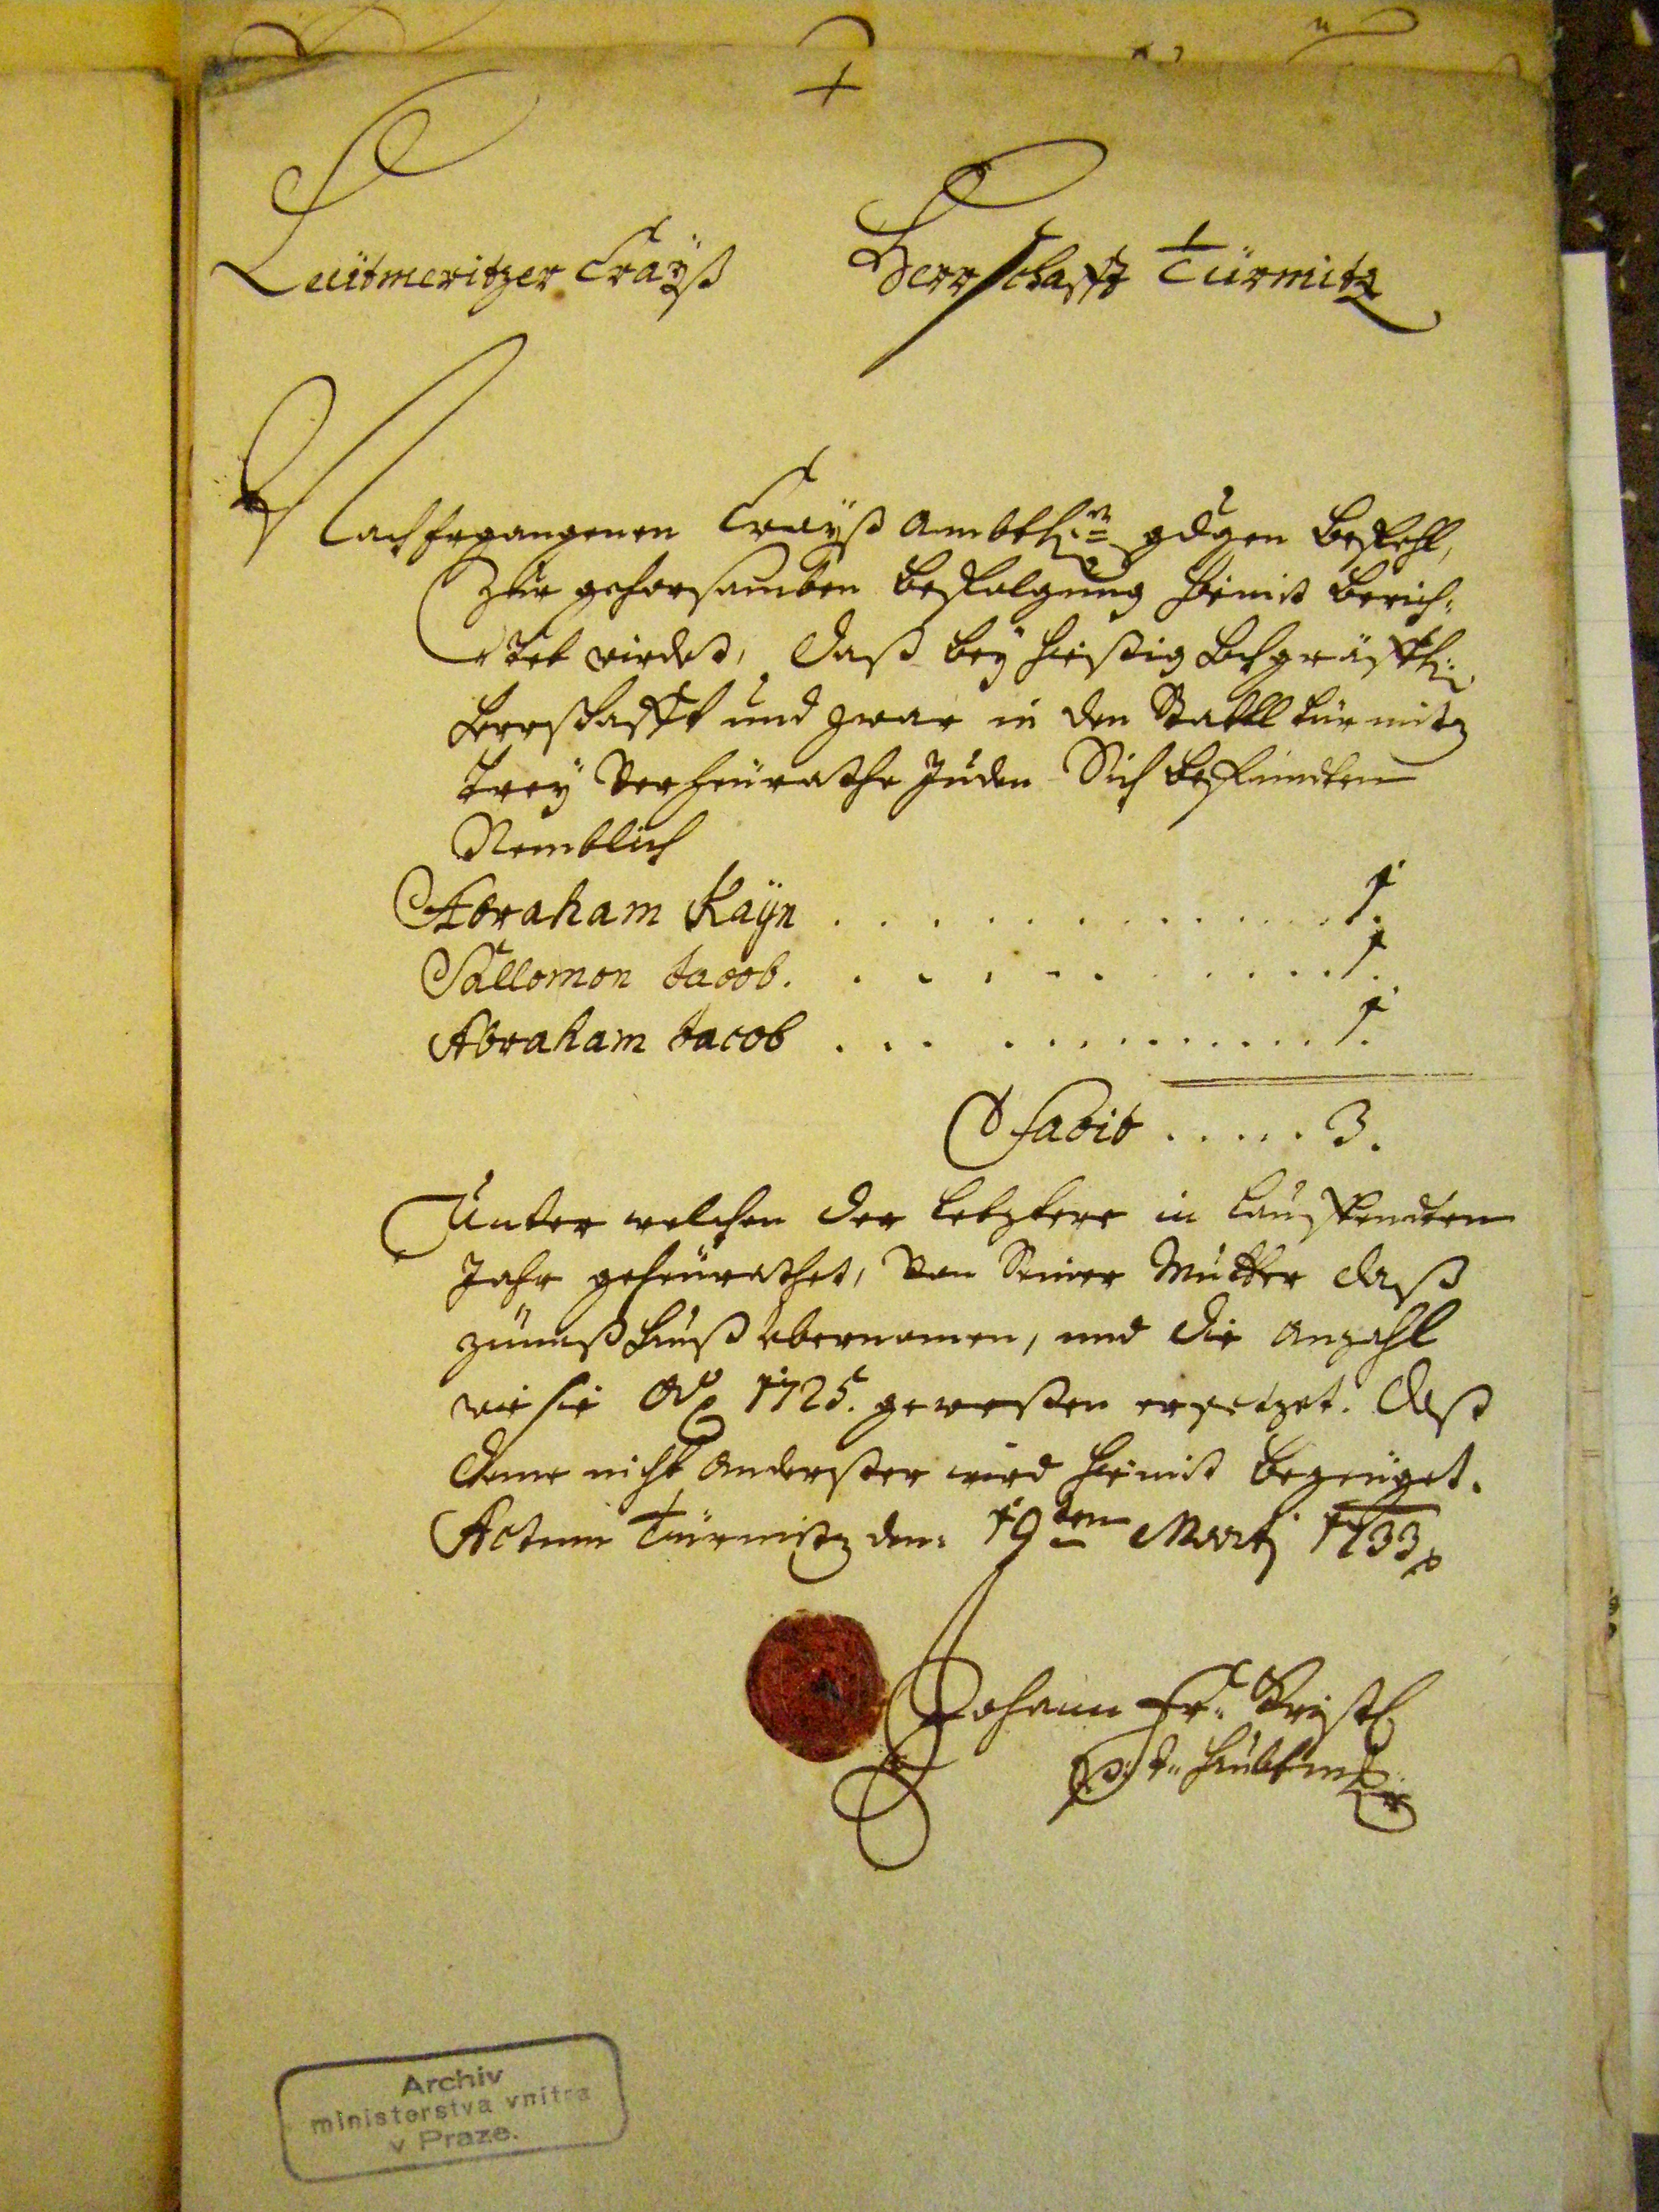 Leütmeritzer Crayß Herrschafft Türmitz
Nach ergangenen Crayß Ambtl: gdgen Befehl,
Zur gehorsamben Befolgung hiemit berich-
tet wirdet, daß bey hießig hochgräffl:
Herrschafft und zwar in den Stattl Türmitz
trey Verheürathe Juden Sich befündten
Nemblich
Abraham Kayn . . . . . . . . . . . 1.
Sallomon Jacob. . . . . . . . . . . 1.
Abraham Jacob . . . . . . . . . . . 1.
Facit . . . . . 3.
Unter welchen der letztere in lauffendten
Jahr geheürathet, von Seiner Mutter daß
Hauß übernomen, und die Anzahl
wie sie Aō 1725. geweßen ersetzet. Daß
deme nicht anderster wird hiemit bezeüget.
Actum Türmitz den: 19ten Martj 1733
Johann Fr:
Haubtm
Archiv
ministerstva vnitra
v Praze.